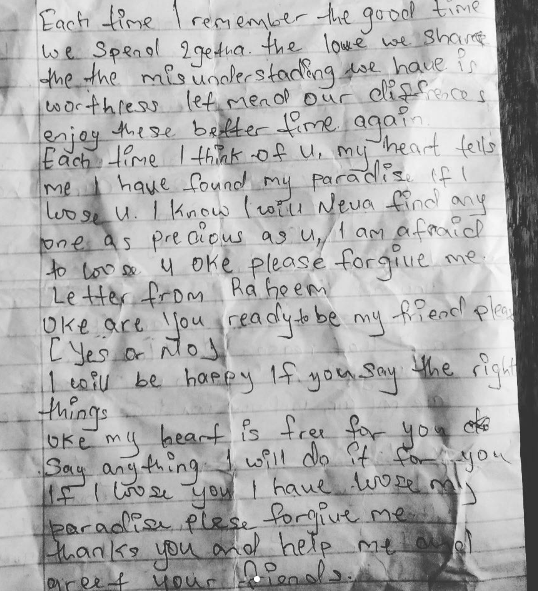 Each time I remember the good time
we spend 2getha. the love we share
the the misunderstading we have is
worthless let mend our differences
enjoy these better time again
Each time I think of u, my heart tells
me I have found my paradise if I
lose u. I know I will Neva find any
one as precious as u, I am afraid
to loose u oke please forgive me.
Letter from Raheem
Oke are you ready to be my friend plea
[Yes or No]
I will be happy If you say the right
things
Oke my heart is free for you
Say anything I will do it for you
If I loose you I have loose my
paradise plese forgive me
thanks you and help me and
greet your friends.